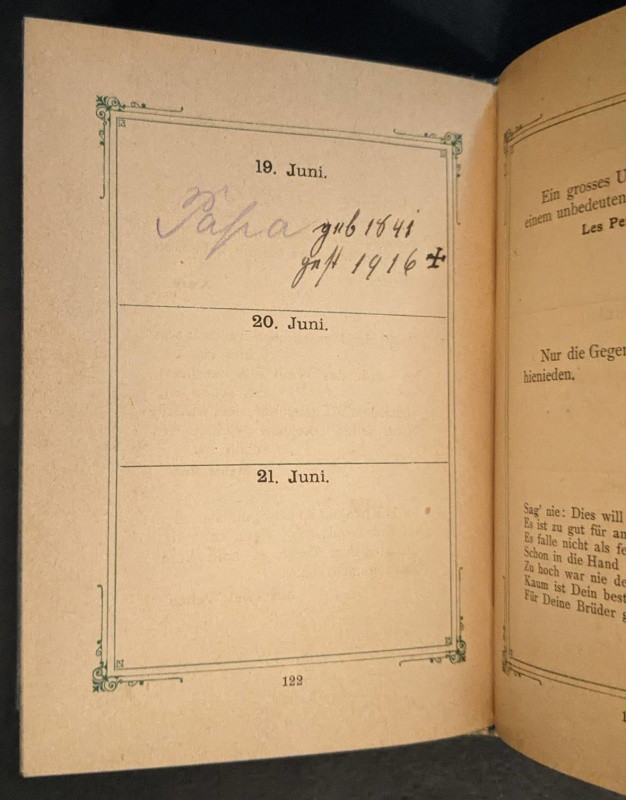 19. Juni.
Papa geb 1841
gest 1916 ✝
20. Juni.
21. Juni.
122
Ein grosses U
einem unbedeuten
Les Pe
Nur die Gegen
hienieden.
Sag' nie: Dies will
Es ist zu gut für an
Es falle nicht als fe
Schon in die Hand
Zu hoch war nie de
Kaum ist Dein best
Für Deine Brüder g
1